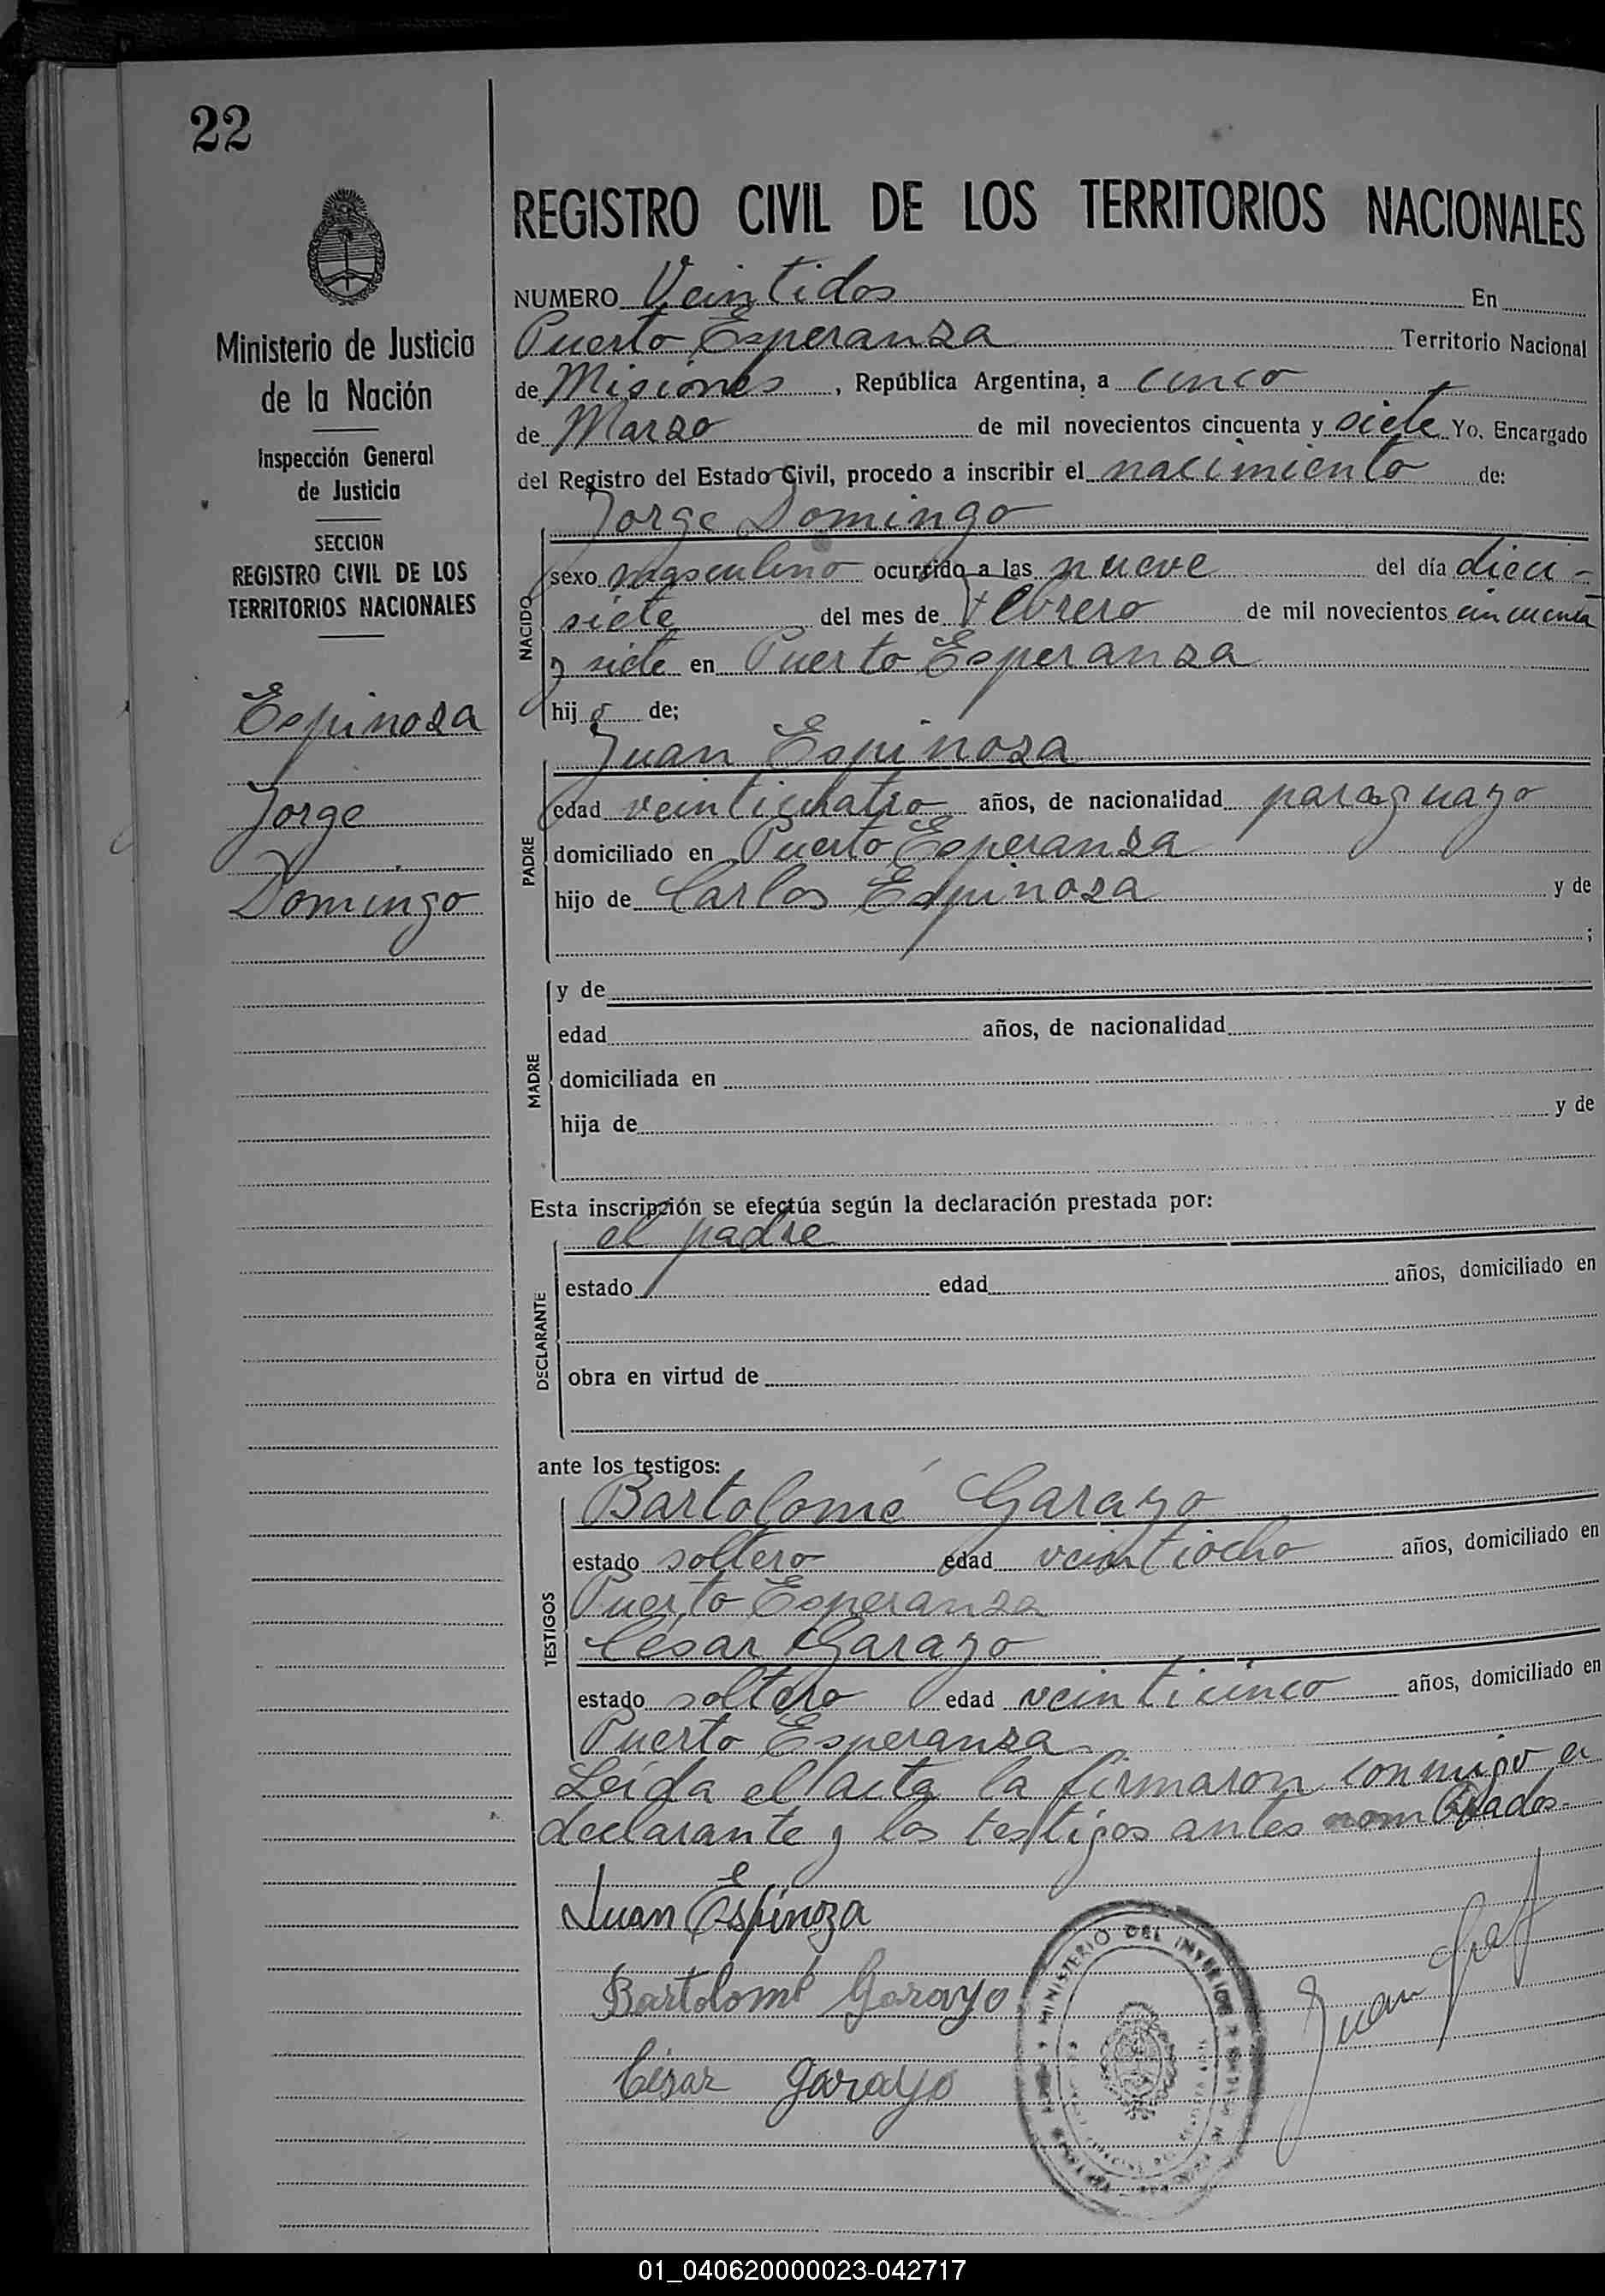 22
REGISTRO CIVIL DE LOS TERRITORIOS NACIONALES
Ministerio de Justicia
de la Nación
Inspección General
de Justicia
SECCION
REGISTRO CIVIL DE LOS
TERRITORIOS NACIONALES
Espinoza
Jorge
Domingo
NUMERO Veintidos En
Puerto Esperanza Territorio Nacional
de Misiones, República Argentina, a cinco
de Marzo de mil novecientos cincuenta y siete Yo, Encargado
del Registro del Estado Civil, procedo a inscribir el nacimiento de:
NACIDO
Jorge Domingo
sexo masculino ocurrido a las nueve del día dieci-
siete del mes de Febrero de mil novecientos cincuenta
y siete en Puerto Esperanza
hijo de;
PADRE
Juan Espinoza
edad veinticuatro años, de nacionalidad paraguayo
domiciliado en Puerto Esperanza
hijo de Carlos Espinoza y de
;
MADRE
y de
edad años, de nacionalidad
domiciliada en
hija de y de
Esta inscripción se efectúa según la declaración prestada por:
DECLARANTE
el padre
estado edad años, domiciliado en
obra en virtud de
ante los testigos:
TESTIGOS
Bartolomé Garayo
estado soltero edad veintiocho años, domiciliado en
Puerto Esperanza
César Garayo
estado soltero edad veinticinco años, domiciliado en
Puerto Esperanza
Leída el acta la firmaron conmigo el
declarante y los testigos antes nombrados.
Juan Espinoza
Bartolomé Garayo
César Garayo
Juan
MINISTERIO DEL INTERIOR
01_040620000023-042717